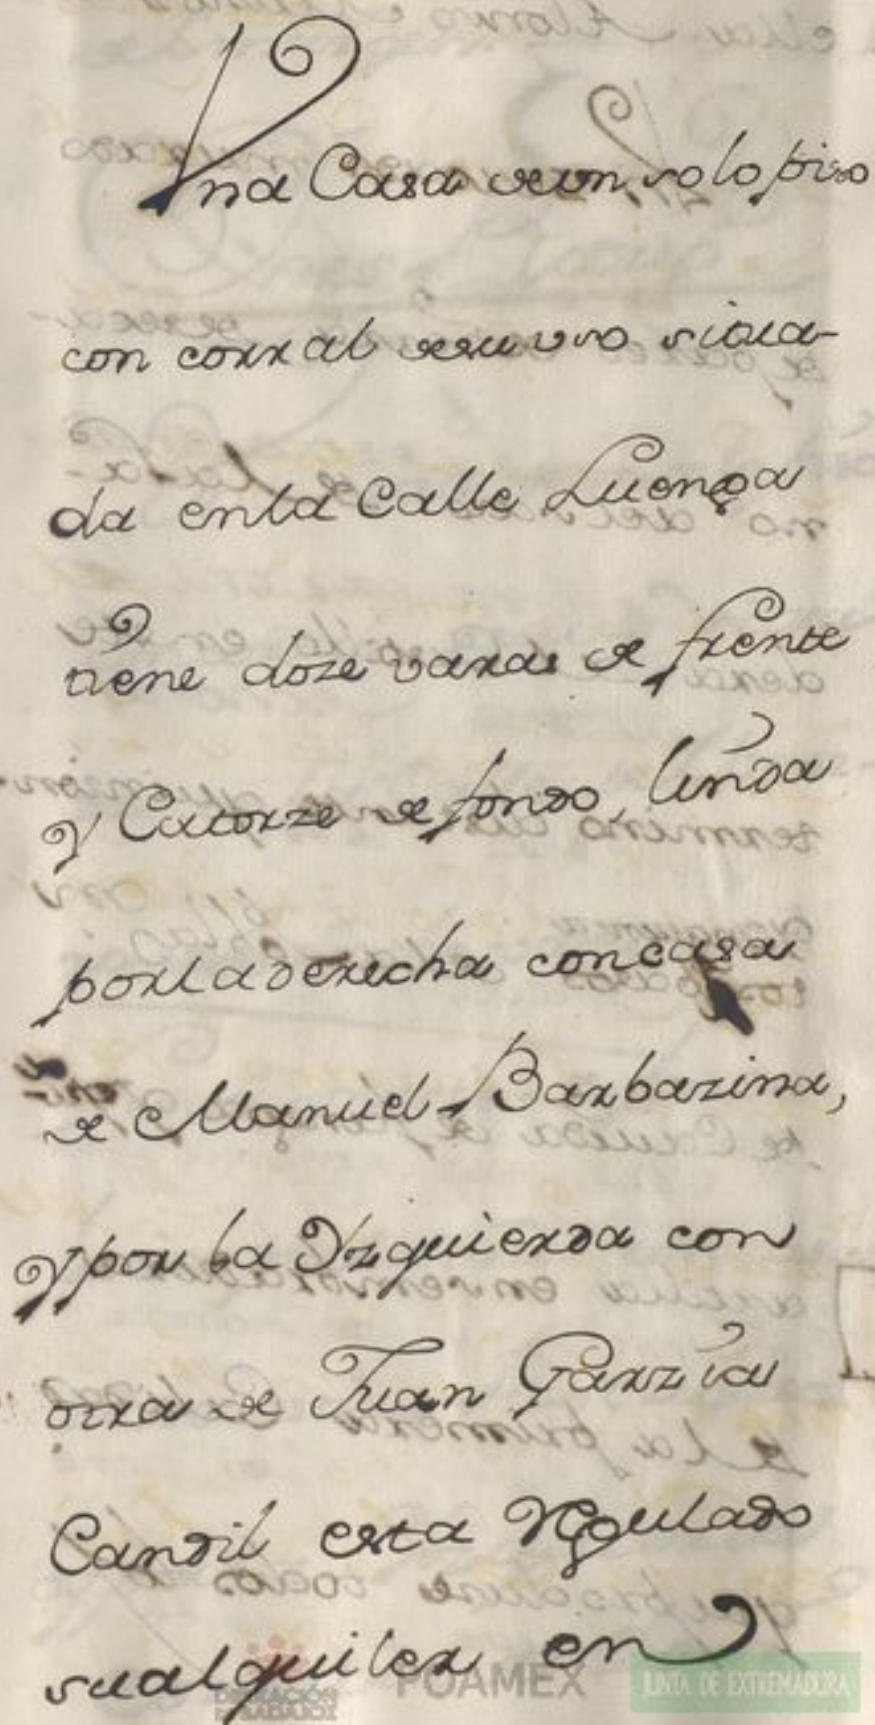 Vna Casa de un solo piso
con corral de su vso situa-
da en la Calle Luenga
tiene doze varas de frente
y Catorze de fondo, linda
por la derecha con casa
de Manuel Barbazina,
y por la Yzquierda con
otra de Juan Garzia
Candil esta Regulado
su alquiler en
DIPUTACIÓN
DE BADAJOZ
FOAMEX
JUNTA DE EXTREMADURA